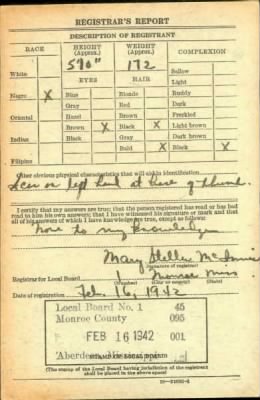 REGISTRAR'S REPORT
DESCRIPTION OF REGISTRANT
RACE HEIGHT (Approx.) WEIGHT (Approx.) COMPLEXION
5'10" 172
EYES HAIR
White Sallow
Light
Negro X Blue Blonde Ruddy
Gray Red Dark
Oriental Hazel Brown Freckled
Brown X Black X Light brown
Indian Black Gray Dark brown
Bald X Black X
Filipino
Other obvious physical characteristics that will aid in identification
Scar on left hand at base of thumb.
I certify that my answers are true; that the person registered has read or has had
read to him his own answers; that I have witnessed his signature or mark and that
all of his answers of which I have knowledge are true, except as follows:
none to my knowledge
Mary Stella
(Signature of registrar)
Registrar for Local Board 1 Monroe Miss
(Number) (City or county) (State)
Date of registration Feb. 16, 1942
Local Board No. 1 45
Monroe County 095
FEB 16 1942 001
Aberdeen, Mississippi
(STAMP OF LOCAL BOARD)
(The stamp of the Local Board having jurisdiction of the registrant
shall be placed in the above space)